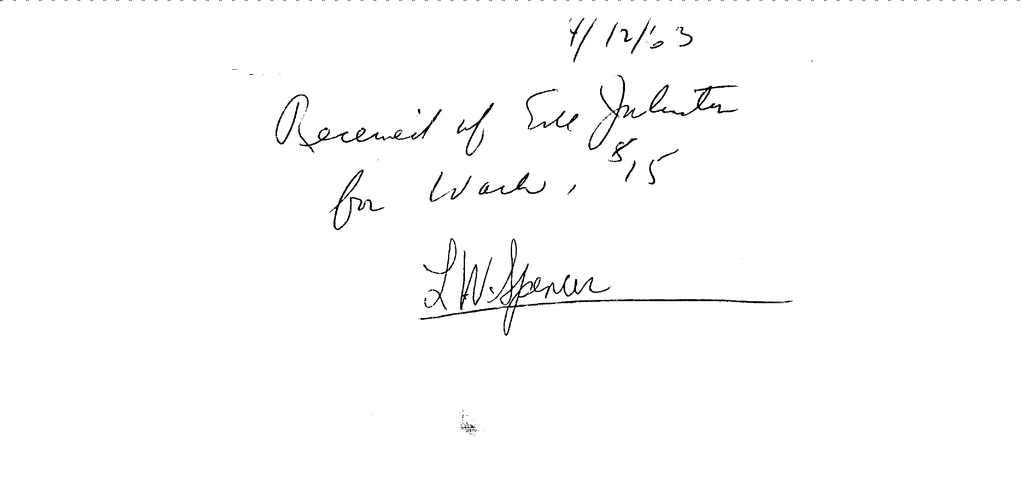 4/12/63
Received of Erle Johnston
for Work, $15
L W. Spencer